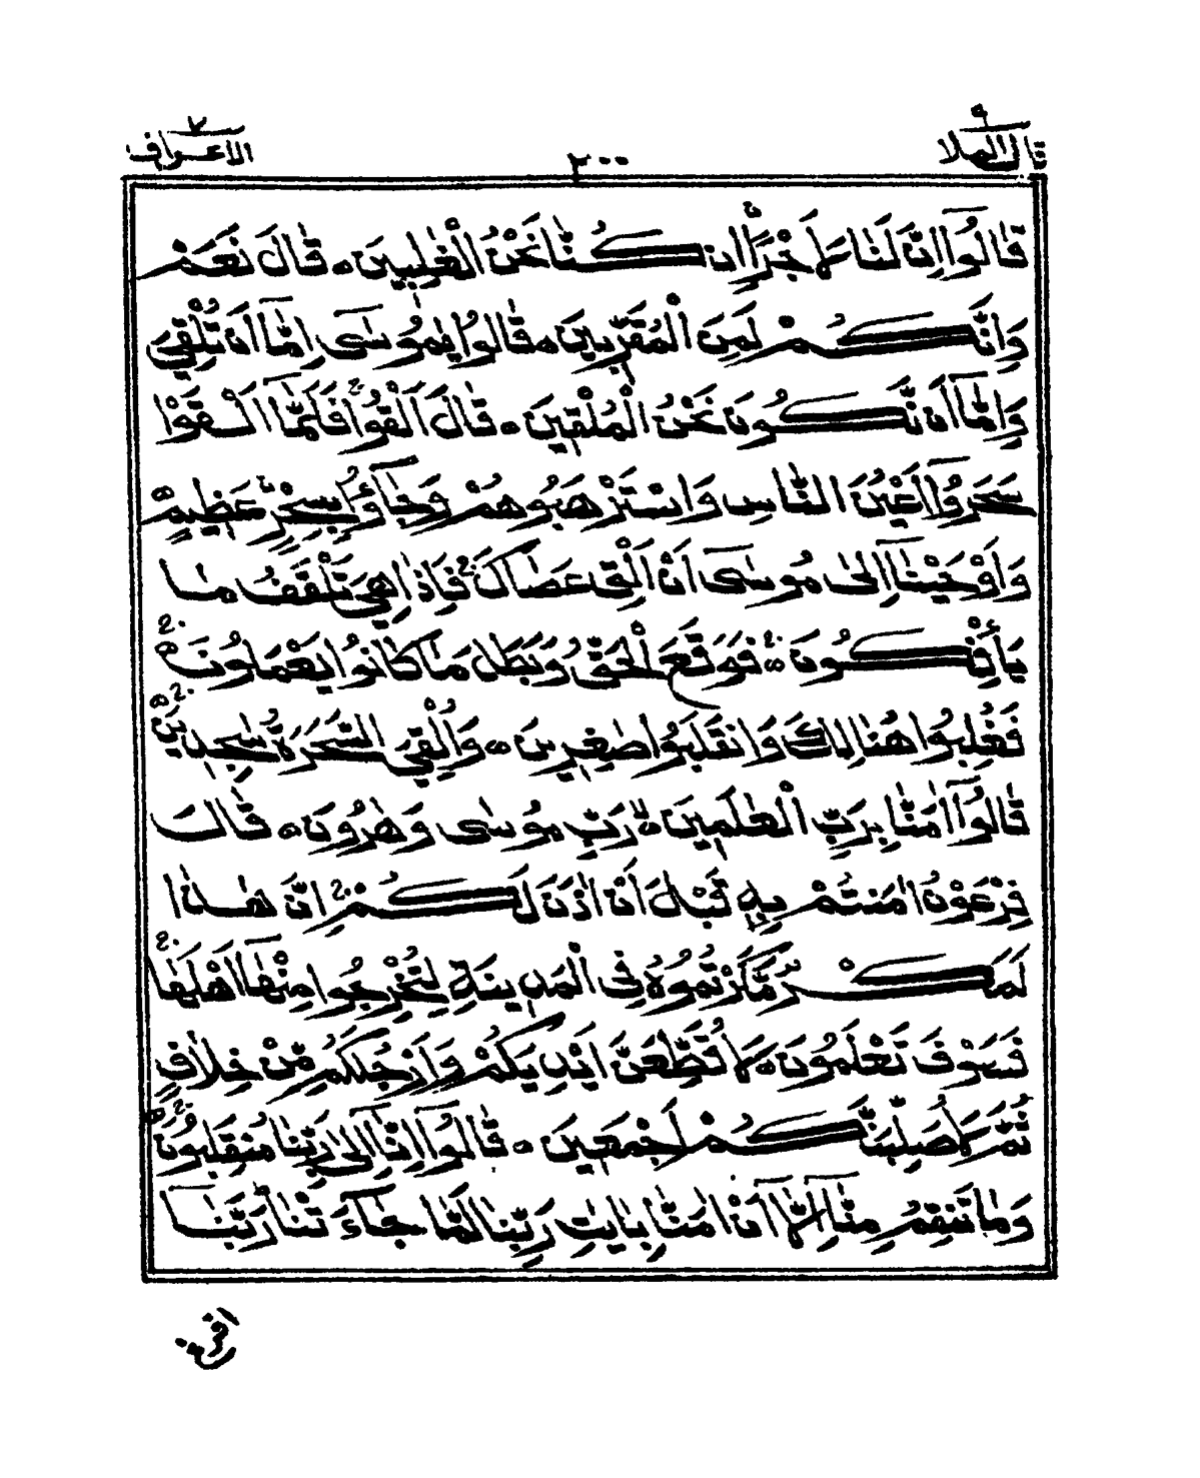 قال الملا ٩
٢٠٠
الاعراف ٧
قَالُوٓا اِنَّ لَنَا لَاَجْرًا اِن كُنَّا نَحْنُ الْغٰلِبِينَ ۝ قَالَ نَعَمْ
وَاِنَّكُمْ لَمِنَ الْمُقَرَّبِينَ ۝ قَالُوا يٰمُوسٰٓى اِمَّآ اَن تُلْقِيَ
وَاِمَّآ اَن نَّكُونَ نَحْنُ الْمُلْقِينَ ۝ قَالَ اَلْقُوا فَلَمَّآ اَلْقَوْا
سَحَرُوٓا اَعْيُنَ النَّاسِ وَاسْتَرْهَبُوهُمْ وَجَآءُو بِسِحْرٍ عَظِيمٍ ۝
وَاَوْحَيْنَآ اِلٰى مُوسٰٓى اَنْ اَلْقِ عَصَاكَ فَاِذَا هِيَ تَلْقَفُ مَا
يَاْفِكُونَ ۝ فَوَقَعَ الْحَقُّ وَبَطَلَ مَا كَانُوا يَعْمَلُونَ ۝
فَغُلِبُوا هُنَالِكَ وَانقَلَبُوا صٰغِرِينَ ۝ وَاُلْقِيَ السَّحَرَةُ سٰجِدِينَ ۝
قَالُوٓا اٰمَنَّا بِرَبِّ الْعٰلَمِينَ ۝ رَبِّ مُوسٰى وَهٰرُونَ ۝ قَالَ
فِرْعَوْنُ اٰمَنتُمْ بِهٖ قَبْلَ اَنْ اٰذَنَ لَكُمْ اِنَّ هٰذَا
لَمَكْرٌ مَّكَرْتُمُوهُ فِى الْمَدِينَةِ لِتُخْرِجُوا مِنْهَآ اَهْلَهَا
فَسَوْفَ تَعْلَمُونَ ۝ لَاُقَطِّعَنَّ اَيْدِيَكُمْ وَاَرْجُلَكُم مِّنْ خِلَافٍ
ثُمَّ لَاُصَلِّبَنَّكُمْ اَجْمَعِينَ ۝ قَالُوٓا اِنَّآ اِلٰى رَبِّنَا مُنقَلِبُونَ ۝
وَمَا تَنقِمُ مِنَّآ اِلَّآ اَنْ اٰمَنَّا بِاٰيٰتِ رَبِّنَا لَمَّا جَآءَتْنَا رَبَّنَآ
افرغ